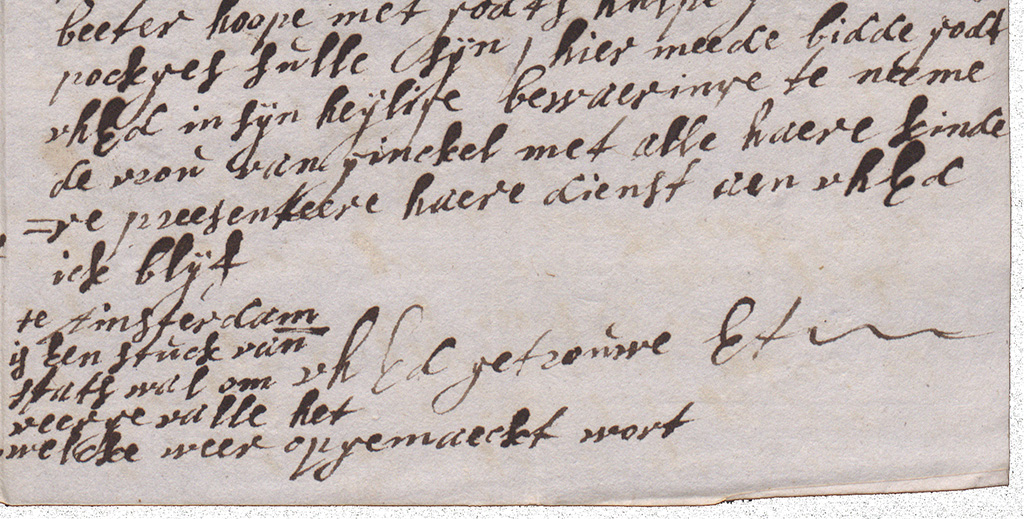 beeter hoope met godts hulpe
pockges sulle syn, hier meede bidde godt
vhEd in syn heylige bewaeringe te neeme
de vrou van ginckel met alle haere kinde
=re preesenteere haere dienst aen vhEd
ick blyf
te Amsterdam
is een stuck van
stats wal om
veerge valle het
welcke weer opgemaeckt wort
vhEd getrouwe Et